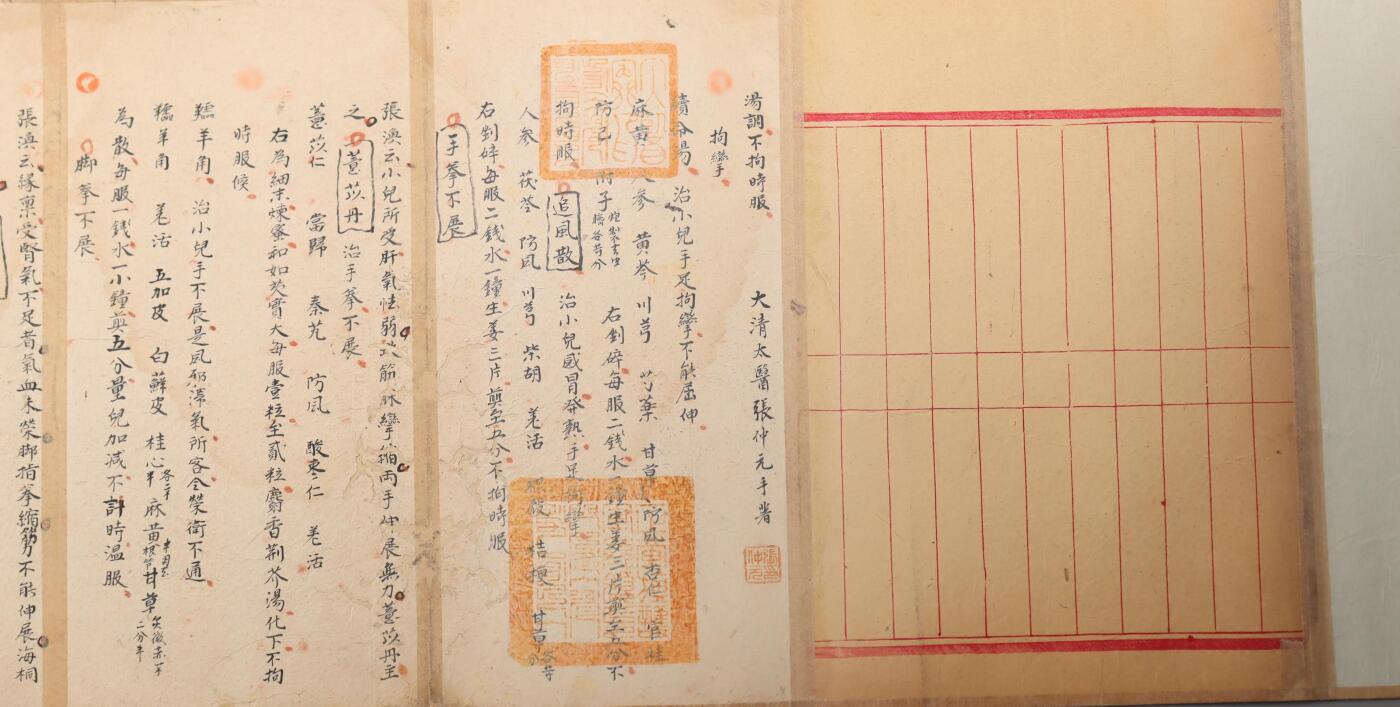 湯調不拘時服　大清太醫張仲元手著
拘攣手
續命湯　治小兒手足拘攣不能屈伸
麻黃　人參　黃芩　川芎　芍藥　甘草　防風　杏仁　官桂
防己　附子炮製去皮臍各等分　右剉碎每服二錢水一鐘生姜三片煎至五分不
拘時服　追風散　治小兒感冒發熱手足拘攣
人參　茯苓　防風　川芎　柴胡　羌活　桔梗　甘草各等分
右剉碎每服二錢水一鐘生姜三片煎至五分不拘時服
手拳不展
張渙云小兒所受肝氣怯弱致筋脉攣縮兩手伸展無力薏苡丹主
之　薏苡丹　治手拳不展
薏苡仁　當歸　秦艽　防風　酸棗仁　羌活
右為細末煉蜜和如芡實大每服壹粒至貳粒麝香荊芥湯化下不拘
時服候
羚羊角　治小兒手不展是風邪滯氣所客令榮衛不通
羚羊角　羌活　五加皮　白蘚皮　桂心各一半　麻黃　甘草
為散每服一錢水一小鐘煎五分量兒加減不計時溫服
脚拳不展
張渙云緣稟受腎氣不足者氣血未榮脚指拳縮努不能伸展海桐